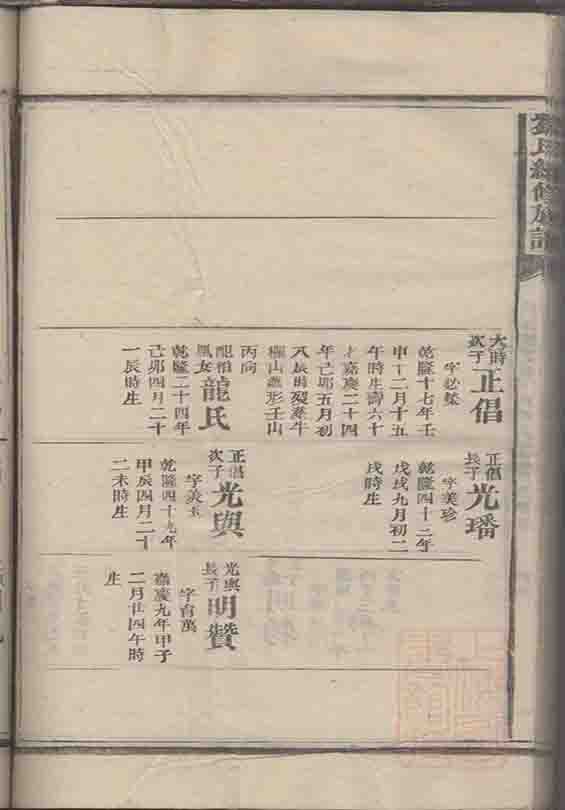 氏續修族譜
大時
次子
正倡
字必榮
乾隆十七年壬
申十二月十五
午時生壽六十
嘉慶二十四
年己卯五月初
八辰時歿葬牛
欄山燕形壬山
丙向
龍氏
乾隆二十四年
己卯四月二十
一辰時生
正倡
長子
光璠
字美珍
乾隆四十三年
戊戌九月初二
戌時生
正倡
次子
光與
字美玉
乾隆四十九年
甲辰四月二十
二未時生
光與
長子
明贊
字育萬
嘉慶九年甲子
二月廿四午時
生